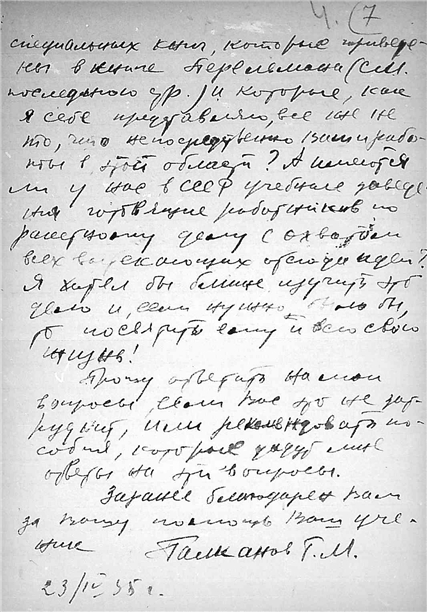 Ч. (7
специальных книг, которые приведе-
ны в книге Перельмана (см.
последнюю стр.) и которые, как
я себе представляю, все же не
то, что непосредственно Ваши рабо-
ты в этой области? А имеются
ли у нас в СССР учебные заведе-
ния готовящие работников по
ракетному делу с охватом
всех вытекающих отсюда идей?
Я хотел бы ближе изучить это
дело и, если нужно бы,
то посвятить ему и всю свою
жизнь!
Прошу ответить на мои
вопросы, если Вас это не зат-
руднит, или рекомендовать по-
собия, которые дадут мне
ответы на эти вопросы.
Заранее благодарен Вам
за Вашу помощь Ваш уче-
ник Галканов Г. М.
23/IV 35 г.